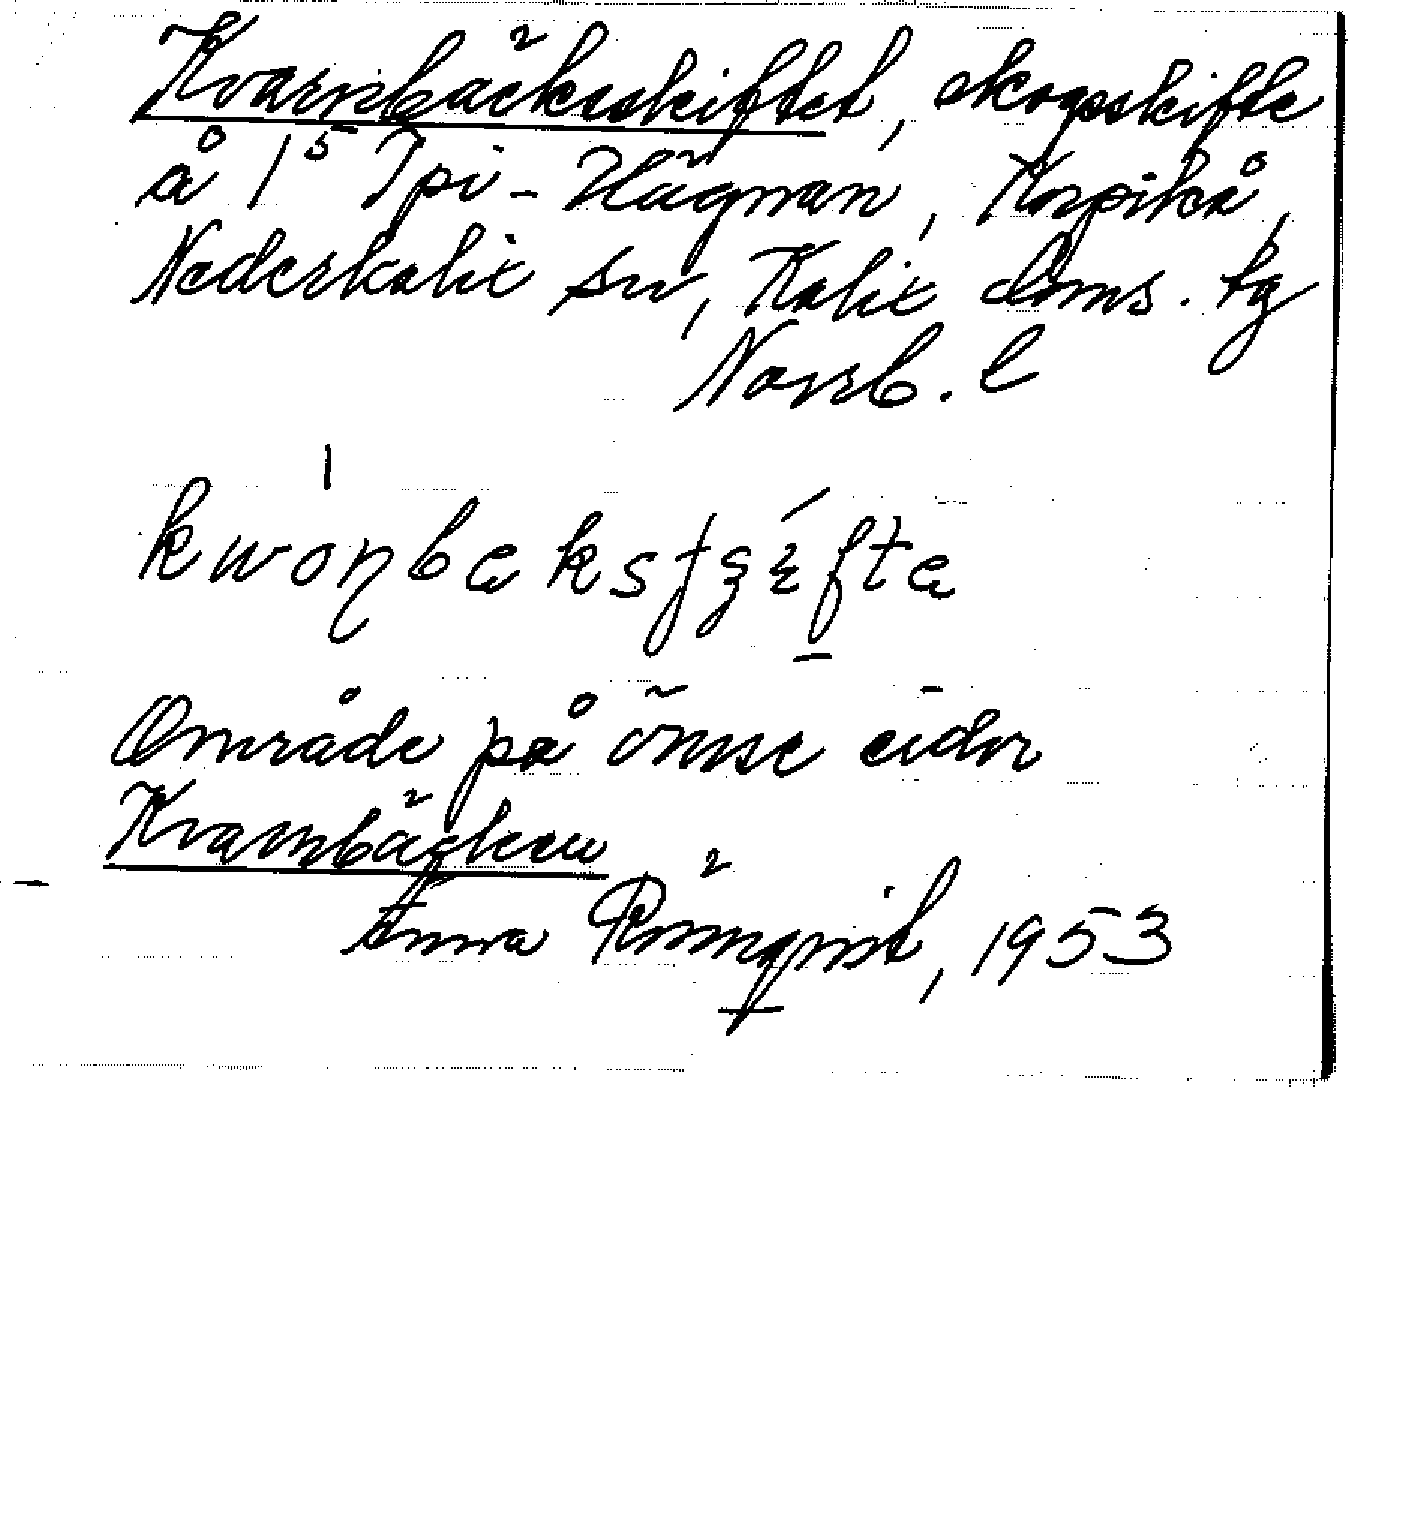 Kvarnbäcksskiftet, skogsskifte
å 1⁵ Ipi-Hägnan, Korpikå,
Nederkalix sn, Kalix doms. tg
Norrb. l
Område på ömse sidor
Kvarnbäcken
Anna Rönnqvist, 1953